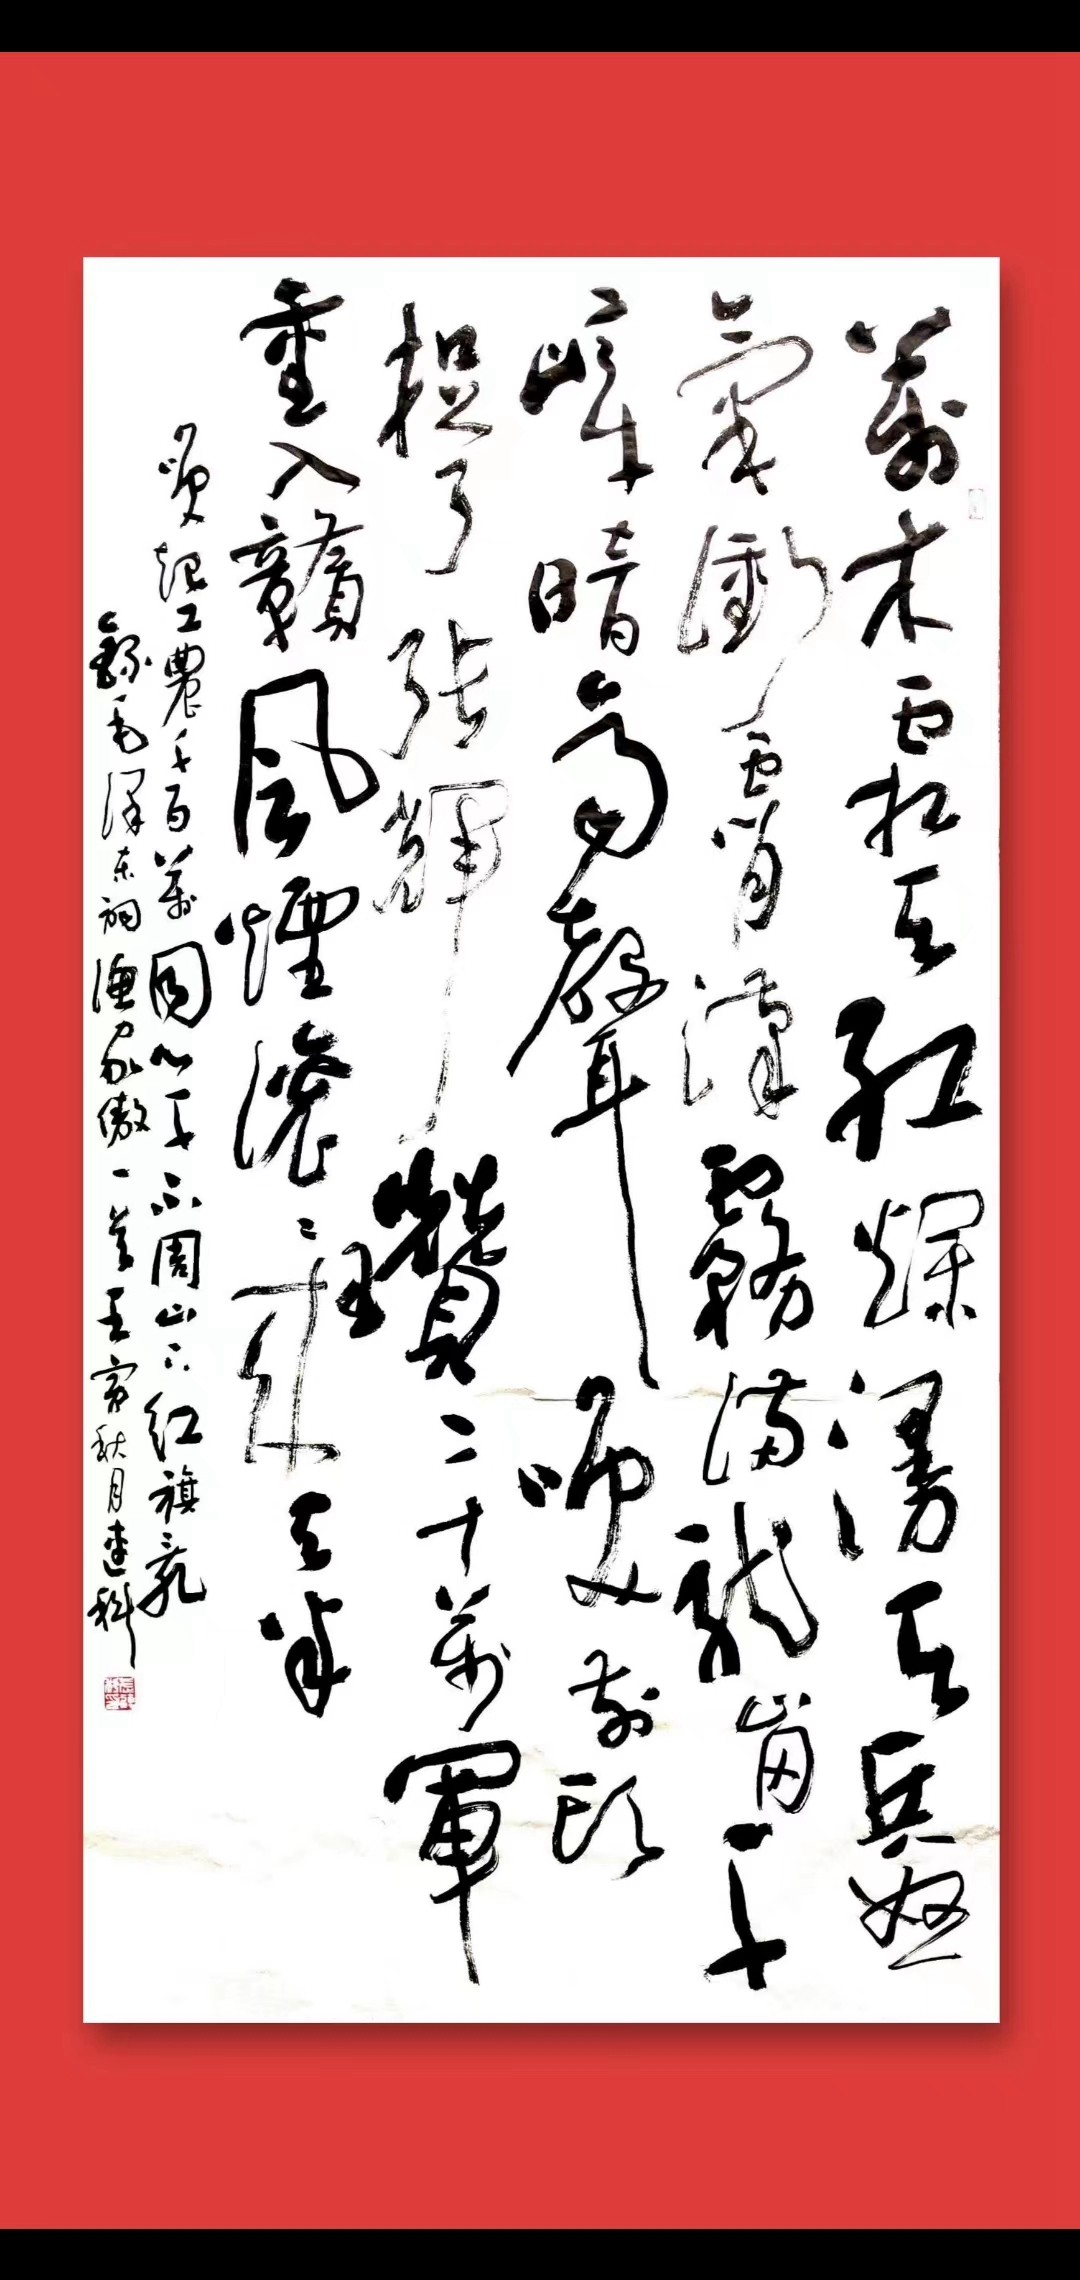 萬木霜天红爛漫天兵怒
氣衝霄漢霧滿龍崗千
嶂暗齊聲唤前頭
捉了張輝瓚二十萬軍
重入贛風煙滚〻来天半
唤起工農千百萬同心干不周山下红旗乱
錄毛澤东词漁家傲一首壬寅秋月科